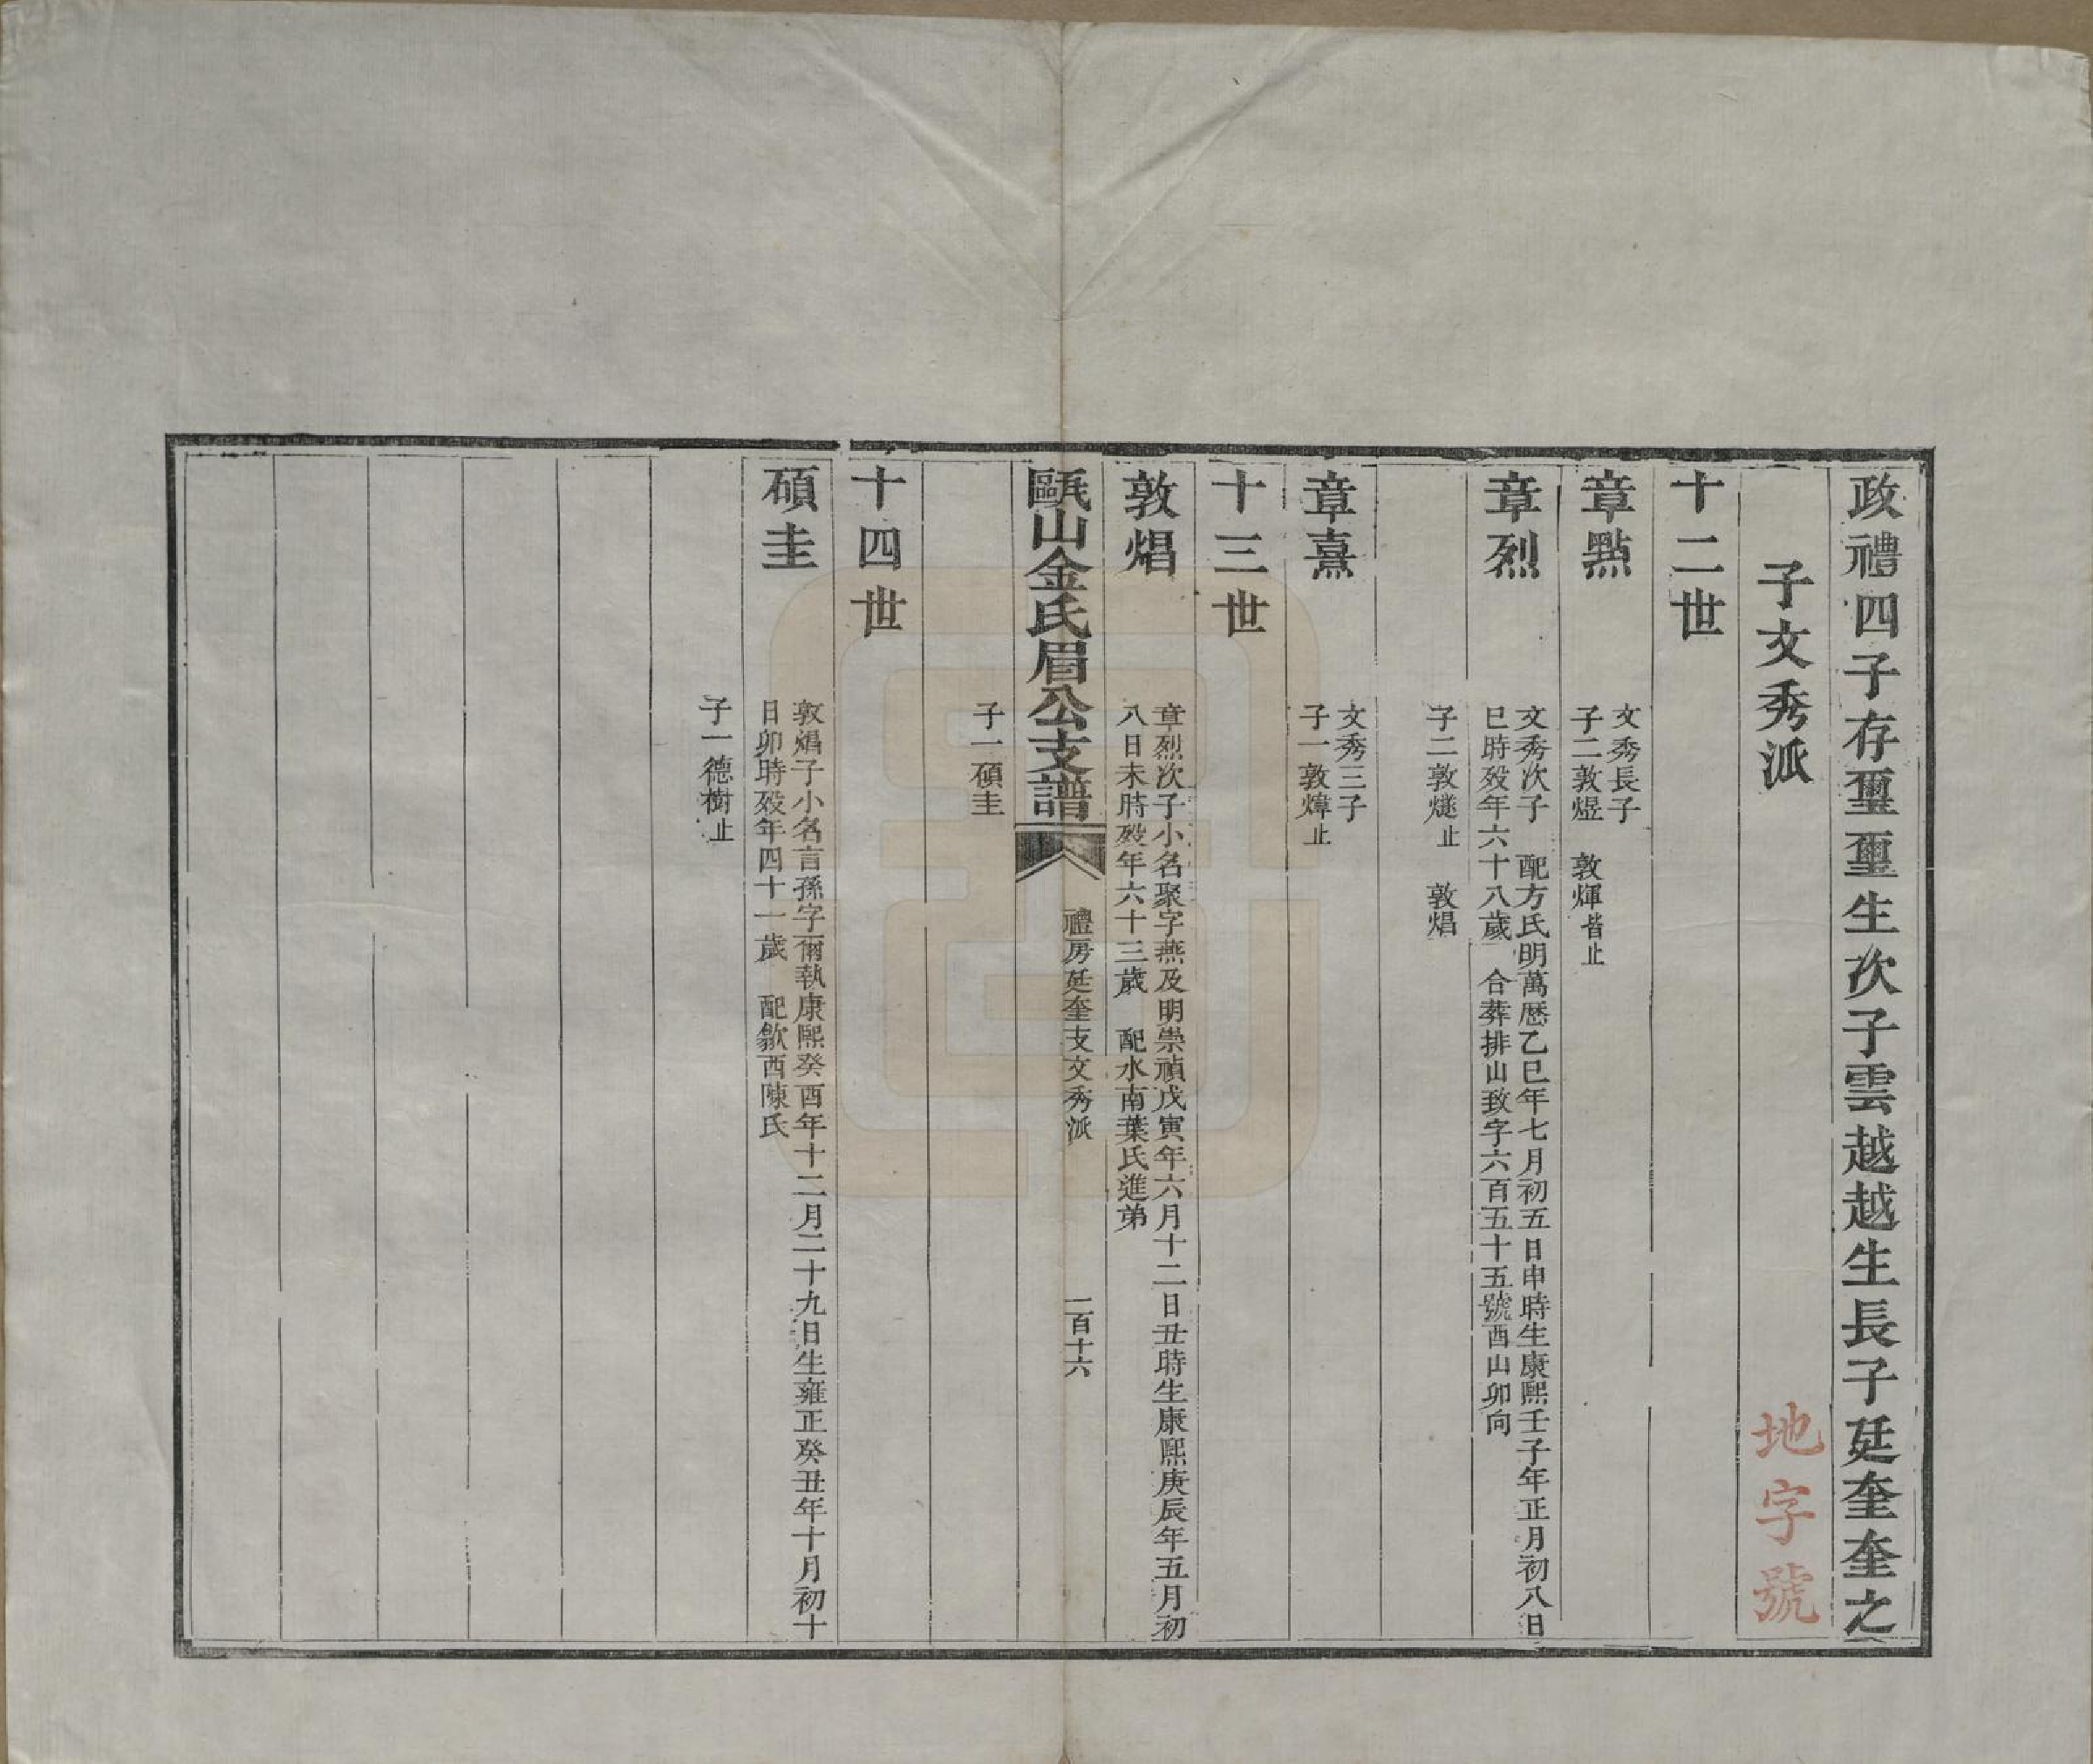 政禮四子存璽璽生次子雲越越生長子廷奎奎之
子文秀派
地字號
十二世
章點
文秀長子
子二敦煜 敦煇皆止
章烈
文秀次子 配方氏明萬歷乙巳年七月初五日申時生康熙壬子年正月初八日
巳時歿年六十八歲 合葬排山致字六百五十五號酉山卯向
子二敦燧止 敦焻
章熹
文秀三子
子一敦煒止
十三世
敦焻
章烈次子小名聚字燕及明崇禎戊寅年六月十二日丑時生康熙庚辰年五月初
八日未時歿年六十三歲 配水南葉氏進弟
甌山金氏眉公支譜
禮房廷奎支文秀派
一百十六
子一碩圭
十四世
碩圭
敦焻子小名言孫字爾執康熙癸酉年十二月二十九日生雍正癸丑年十月初十
日卯時歿年四十一歲 配歙西陳氏
子一德樹止